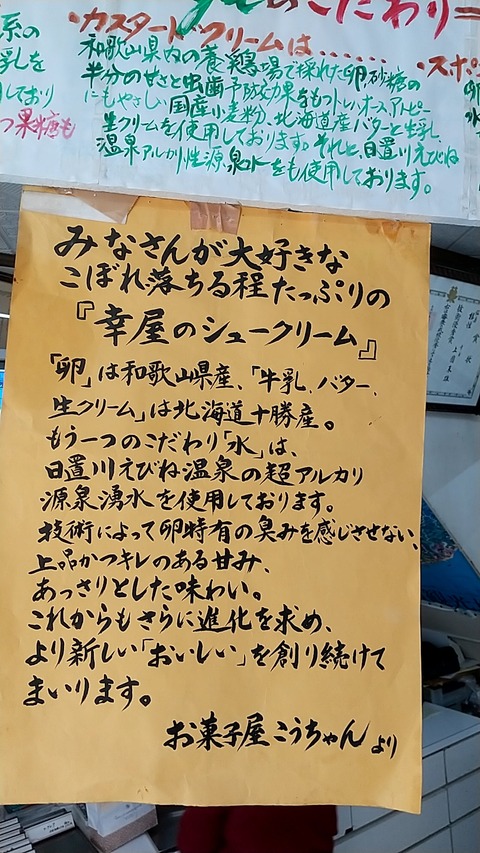 のこだわり=
系の
乳を
ており
つ果糖も
・カスタードクリームは......
和歌山県内の養鶏場で採れた卵、砂糖の
半分の甘さと虫歯予防効果をもつトレハオース、アトピー
にもやさしい国産小麦粉、北海道産バターと生乳、
生クリームを使用しております。それと、日置川えびね
温泉アルカリ性源泉水をも使用しております。
・スポ
卵
水
みなさんが大好きな
こぼれ落ちる程たっぷりの
『幸屋のシュークリーム』
「卵」は和歌山県産、「牛乳、バター、
生クリーム」は北海道十勝産。
もう一つのこだわり「水」は、
日置川えびね温泉の超アルカリ
源泉湧水を使用しております。
技術によって卵特有の臭みを感じさせない、
上品かつキレのある甘み、
あっさりとした味わい。
これからもさらに進化を求め、
より新しい「おいしい」を創り続けて
まいります。
お菓子屋こうちゃんより